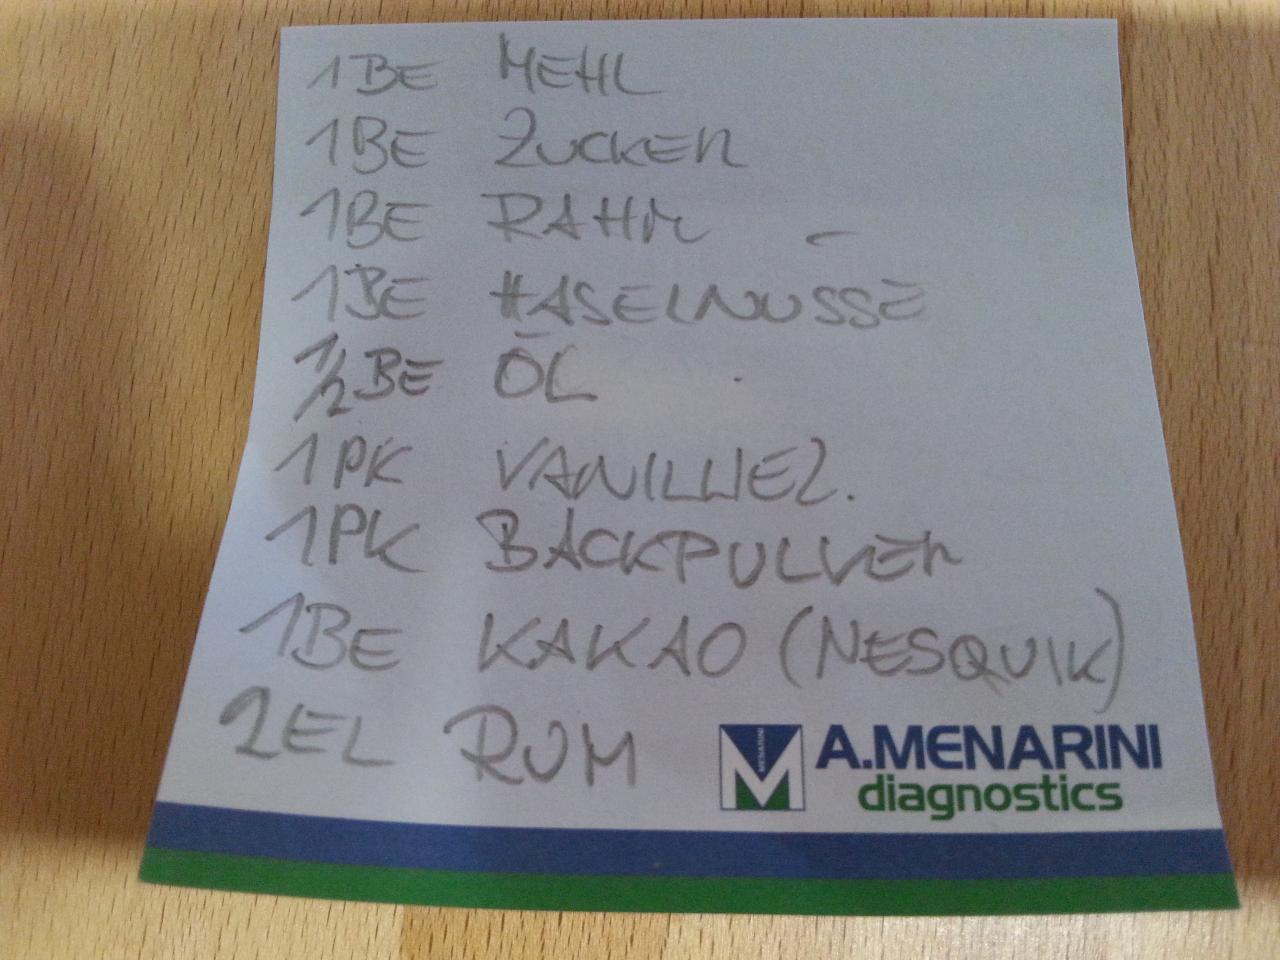 1BE MEHL
1BE ZUCKER
1BE RAHM
1BE HASELNÜSSE
1/2 BE ÖL
1PK VANILLIEZ.
1PK BACKPULVER
1BE KAKAO (NESQUIK)
2EL RUM
MENARINI
A.MENARINI
diagnostics